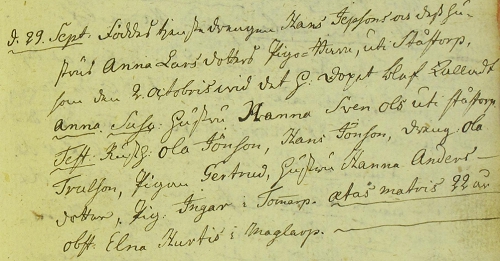 d. 29. Sept. Föddes Hans Jepsons och dess Hu-
strus Anna Lars dotters Pigo-Barn, uti Ståstorp,
som den 2. Octobris wid det H. Dopet blef kalladt
Anna. Susc. Hustru Hanna Sven Ols uti Ståstorp
Test. Ola Jönson, Hans Jönson, dräng Ola
Trulson, Pigan Gertrud, Hustru Hanna Anders-
dotter, Pig. Ingar i Tomarp. Ætas matris 22 år
obst. Elna Kurtis i Maglarp.